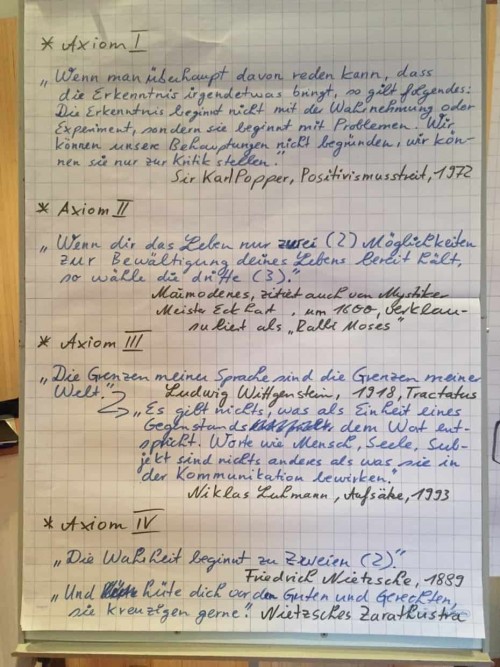 * Axiom I
„Wenn man überhaupt davon reden kann, dass
die Erkenntnis irgendetwas bringt, so gilt folgendes:
Die Erkenntnis beginnt nicht mit der Wahrnehmung oder
Experiment, sondern sie beginnt mit Problemen. Wir
können unsere Behauptungen nicht begründen, wir kön-
nen sie nur zur Kritik stellen."
Sir Karl Popper, Positivismusstreit, 1972
* Axiom II
„Wenn dir das Leben nur zwei (2) Möglichkeiten
zur Bewältigung deines Lebens bereit hält,
so wähle die dritte (3)."
Maimodenes, zitiert auch von Mystiker
Meister Eckart, um 1600, verklau-
suliert als „Rabbi Moses"
* Axiom III
„Die Grenzen meiner Sprache sind die Grenzen meiner
Welt." Ludwig Wittgenstein, 1918, Tractatus
„Es gibt nichts, was als Einheit eines
Gegenstands dem Wort ent-
spricht. Worte wie Mensch, Seele, Sub-
jekt sind nichts anders als was sie in
der Kommunikation bewirken."
Niklas Luhmann, Aufsätze, 1993
* Axiom IV
„Die Wahrheit beginnt zu Zweien (2)."
Friedrich Nietzsche, 1889
„Und hüte dich vor den Guten und Gerechten,
sie kreuzigen gerne." Nietzsches Zarathustra